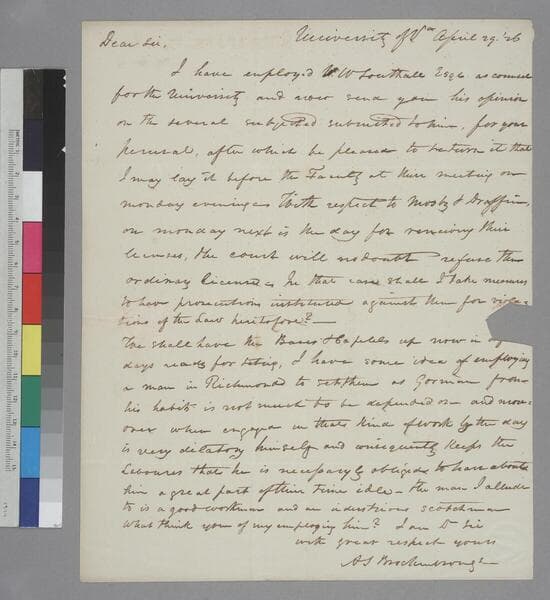 University of Va April 29. '26
Dear Sir,
I have employed V W Southall Esqr as counsel
for the University and now send you his opinion
on the several subjects submitted to him, for your
perusal, after which be pleased to return it that
I may lay it before the Faculty at their meeting on
monday evening. With respect to Mosby &
on monday next is the day for renewing their
licenses, the court will no doubt refuse them
ordinary licenses. In that case shall I take measures
to have prosecutions instituted against them for viola-
tions of the Law heretofore? —
We shall have the Bases & Capitels up now in
days ready for I have some idea of employing
a man in Richmond to set them as Gorman from
his habits is not much to be depended on and more-
over when engaged in that kind of work by the day
is very dilatory himself and consequently keeps the
Labourers that he is necessaryly obliged to have about
him a great part of their time idle — the man I allude
to is a good workman and an industrious scotchman
What think you of my employing him? I am Dr Sir
with great respect yours
A S Brockenbrough